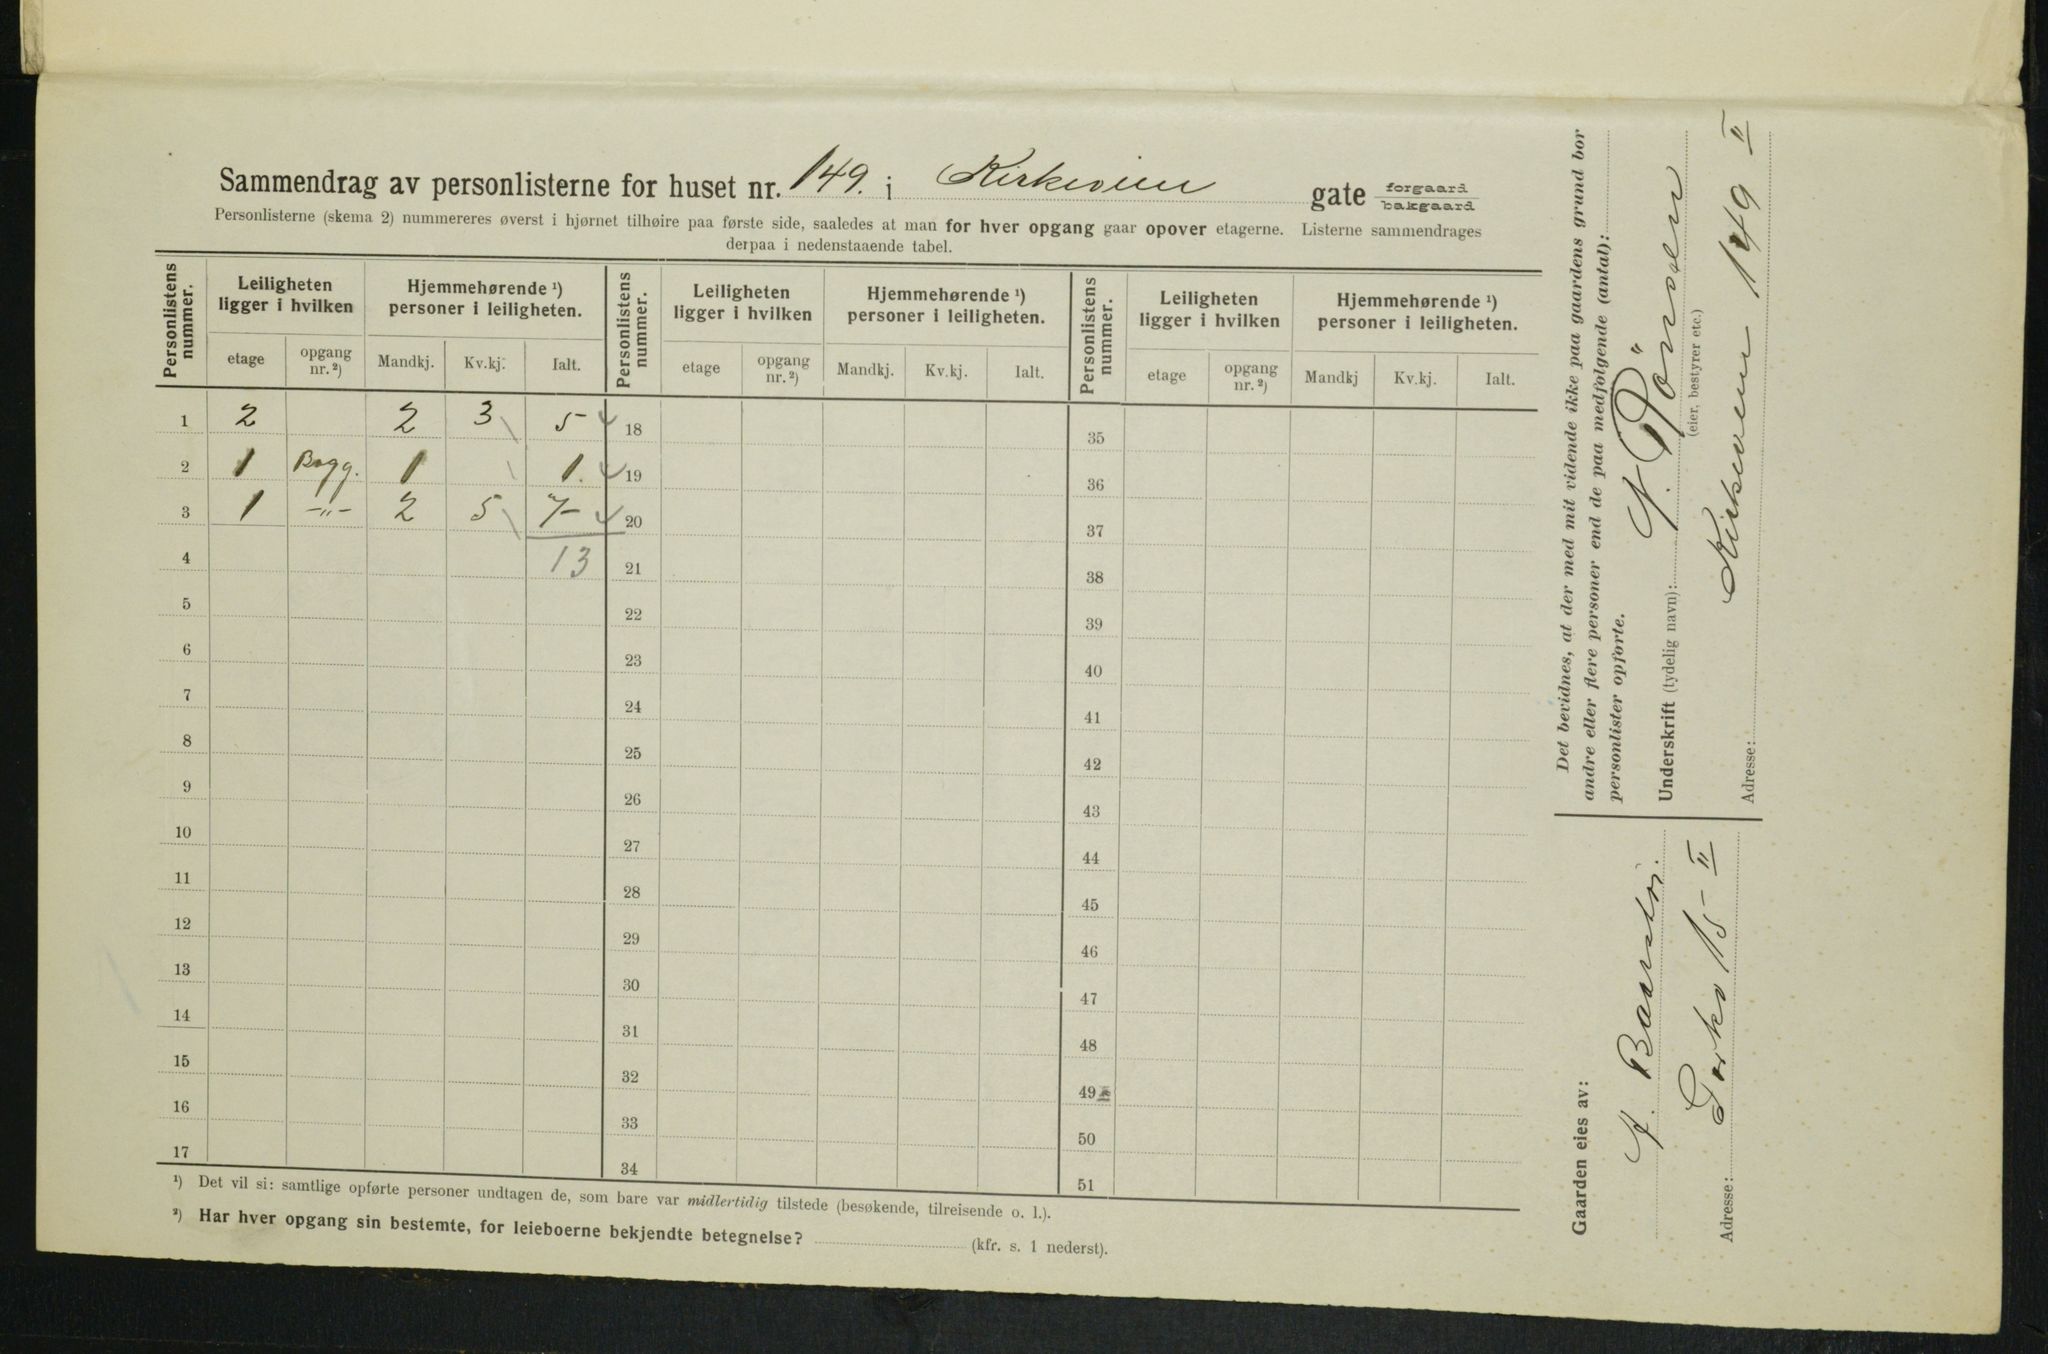 Sammendrag av personlisterne for huset nr. 149. i Kirkeveien gate forgaard bakgaard
Personlisterne (skema 2) nummereres øverst i hjørnet tilhøire paa første side, saaledes at man for hver opgang gaar opover etagerne. Listerne sammendrages
derpaa i nedenstaaende tabel.
Personlistens nummer. Leiligheten ligger i hvilken Hjemmehørende ¹) personer i leiligheten. Personlistens nummer. Leiligheten ligger i hvilken Hjemmehørende ¹) personer i leiligheten. Personlistens nummer. Leiligheten ligger i hvilken Hjemmehørende ¹) personer i leiligheten.
etage opgang nr. ²) Mandkj. Kv.kj. Ialt. etage opgang nr. ²) Mandkj. Kv.kj. Ialt. etage opgang nr. ²) Mandkj Kv.kj. Ialt.
1 2 2 3 5 18 35
2 1 Bagg. 1 1. 19 36
3 1 -"- 2 5 7- 20 37
4 13 21 38
5 22 39
6 23 40
7 24 41
8 25 42
9 26 43
10 27 44
11 28 45
12 29 46
13 30 47
14 31 48
15 32 49
16 33 50
17 34 51
¹) Det vil si: samtlige opførte personer undtagen de, som bare var midlertidig tilstede (besøkende, tilreisende o. l.).
²) Har hver opgang sin bestemte, for leieboerne bekjendte betegnelse? (kfr. s. 1 nederst).
Det bevidnes, at der med mit vidende ikke paa gaardens grund bor
andre eller flere personer end de paa medfølgende (antal):
personlister opførte.
Underskrift (tydelig navn):
(eier, bestyrer etc.)
Adresse: Kirkeveien 149 II
Gaarden eies av:
Adresse: 15 II